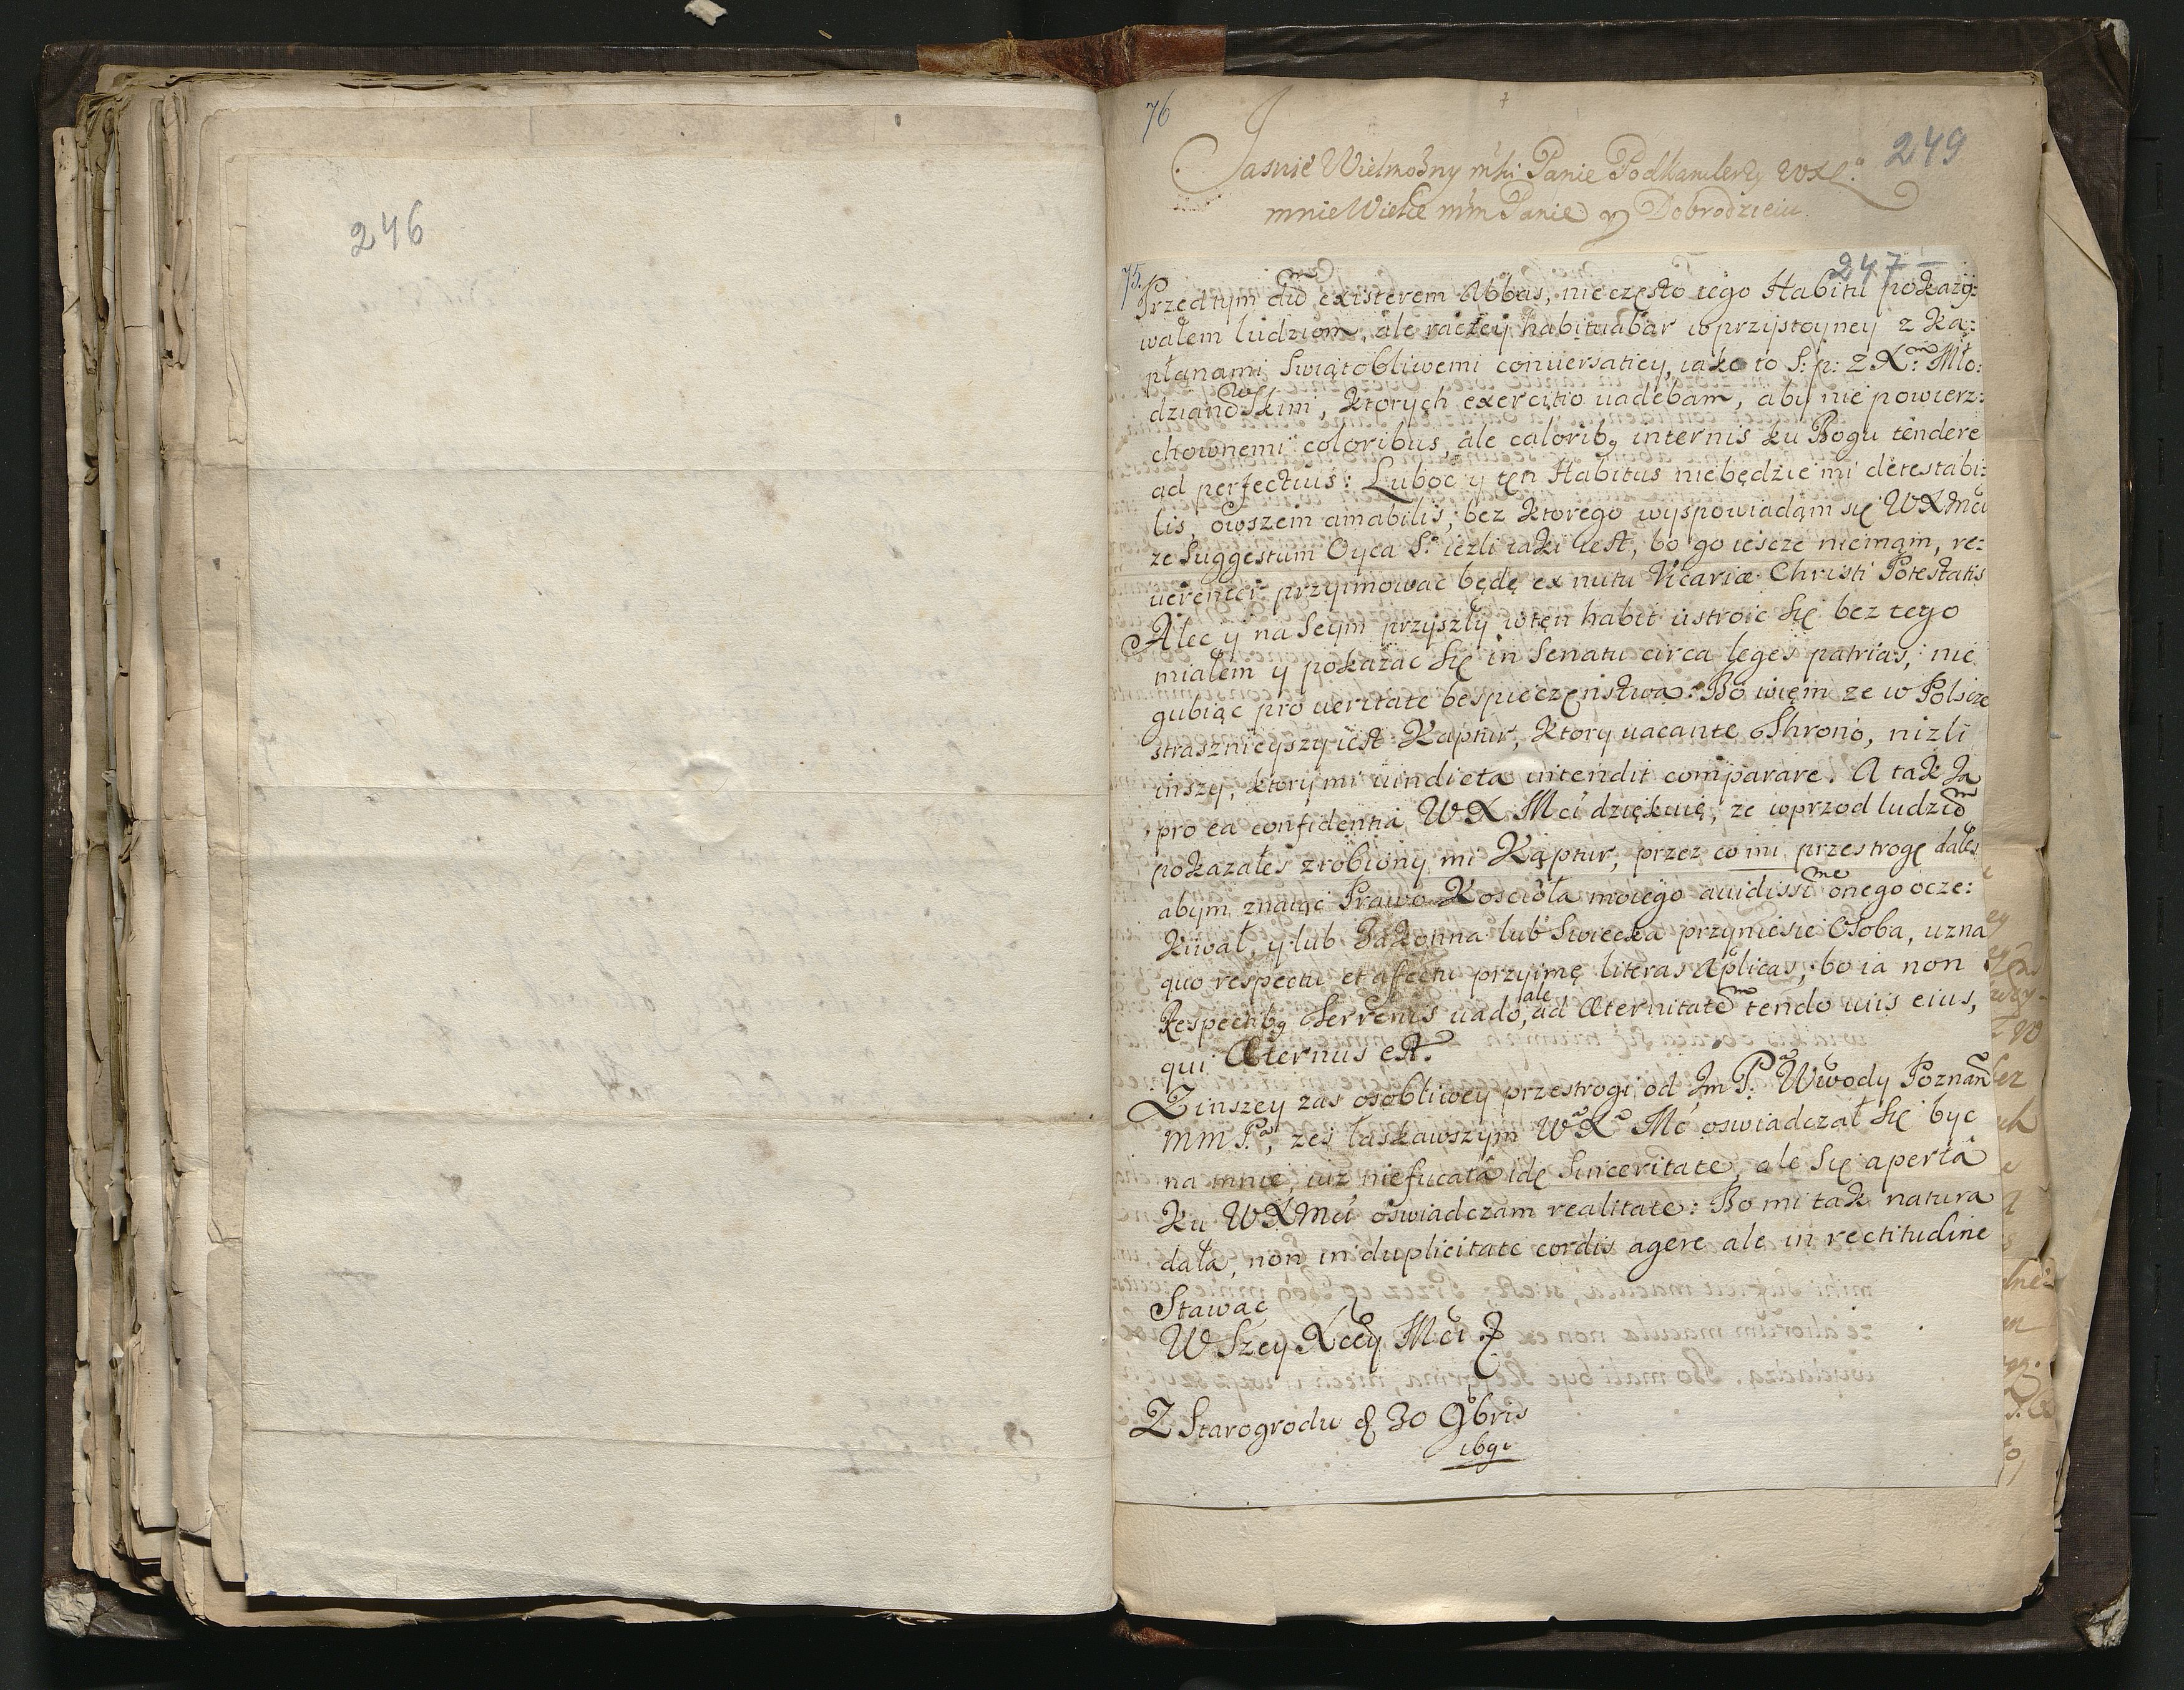 246
76
249
Jasnie Wielmożny mki Panie Podkanclerzy WXL:
mnie Wielce mm Panie y Dobrodzieiu
75.
247
Przedtym dũ existerem Abbas, nieczęsto tego Habitu pokazy:
wałem ludziom, ale raczey habituabar w przystoyney z Ka:
płanami Swiątobliwemi conuersatiey, iako to S: p: z X: Mło:
dzianowskim, ktorych exercitio uadebam, aby nie powierz:
chownemi coloribus, ale calorib9 internis ku Bogu tendere
ad perfectius: Luboc y ten Habitus niebędzie mi detestabi:
lis, owszem amabilis, bez ktorego wyspowiadam się WXMci
ze Suggestum Oyca S.º iezli taki iest, bo go iescze niemam, re:
uerenter przyimowac będę ex nutu Vicariæ Christi Potestatis
Alec y na Seym przyszły w ten habit ustroic się bez tego
miałem y pokazac się in Senatu circa leges patrias, nie
gubiąc pro ueritate bespieczenstwa. Bo wiem ze w Polscze
strasznieyszy iest Kaptur, ktory uacante Throno, nizli
inszy, ktory mi uindicta intendit comparare. A tak Ja
pro ea confidentia WX Mci dziękuię, ze wprzod ludziõ
pokazałes zrobiony mi Kaptur, przez co mi przestrogę dałes
abym znaiąc Prawo Kosciola moiego auidissime onego ocze:
kiwał, y lub Zakonna lub Swiecka przyniesie Osoba, uzna
quo respectu et affectu przyimę literas Aplicas, bo ia non
Respectib9 Terrenis uado, ale ad Æternitatẽ tendo uiis eius,
qui Æternus est.
Z inszey zas osobliwey przestrogi od Jm P. Wwody Poznan
mm Pa, zes łaskawszym WX Mć oswiadczał się byc
na mnie, iuz niefucatâ idę Sinceritate, ale się apertâ
ku WXMci oswiadczam realitate: Bo mi tak natura
dała, non in duplicitate cordis agere ale in rectitudine
Stawac
WSzey Xcey Mci
Z Starogrodu d 30 9bris
1691